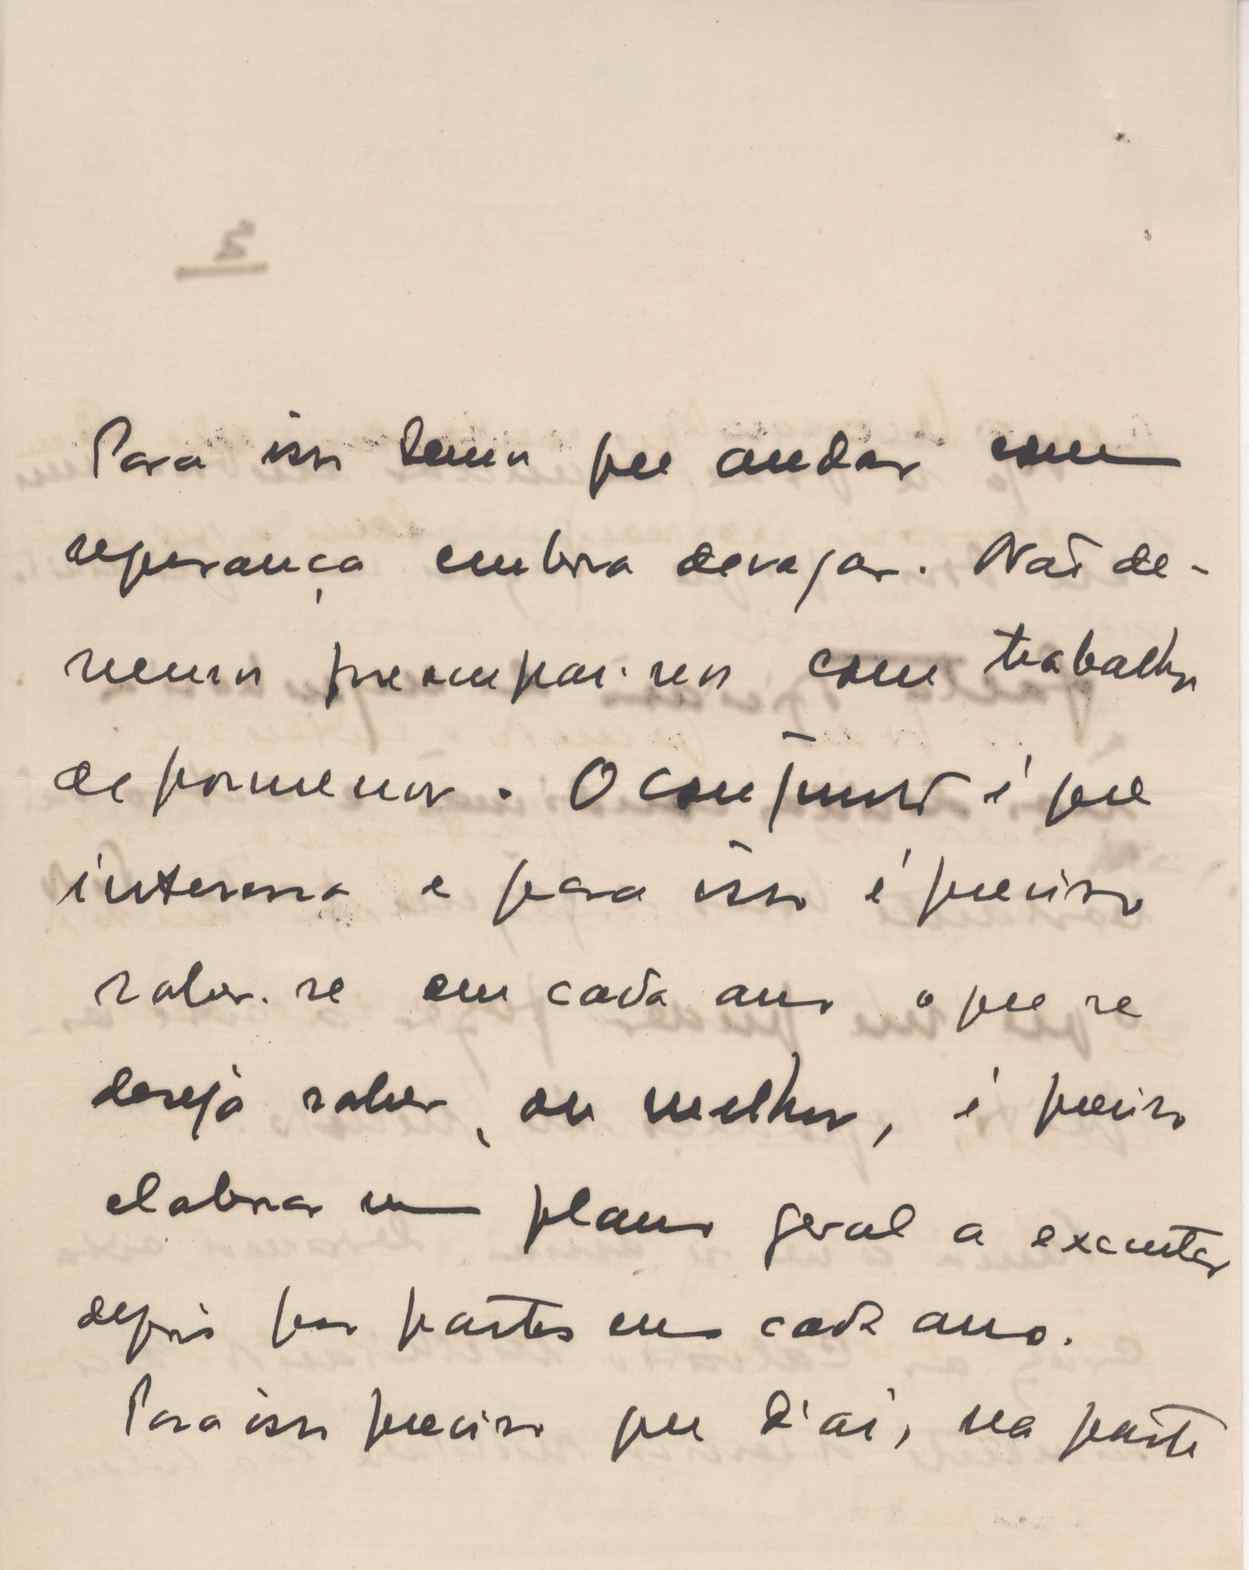 Para isso temos que andar com
segurança embora devagar. Não de-
vemos preocupar-nos com trabalhos
de pormenor. O conjunto é que
interessa e para isso é preciso
saber-se em cada ano o que se
deseja saber, ou melhor, é preciso
elaborar um plano geral a executar
depois por partes em cada ano.
Para isso preciso que d'aí, na parte